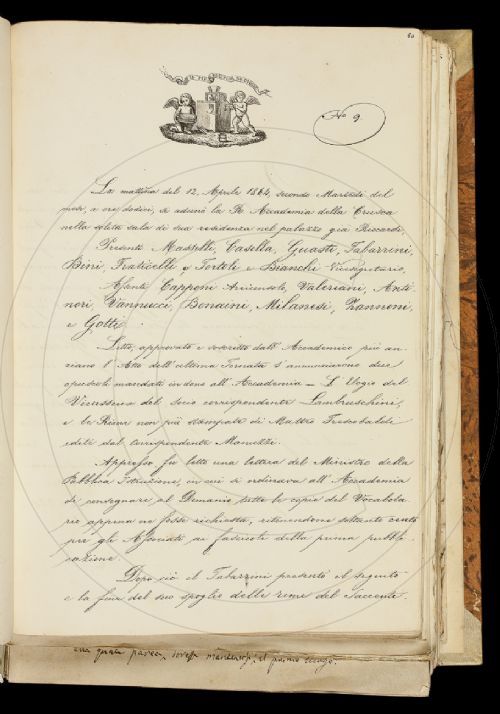 80
No 9.
La mattina del 12. Aprile 1864, secondo Martedì del
mese, a ore dodici, si adunò la R. Accademia della Crusca
nella solita sala di sua residenza nel palazzo già Riccardi.
Presenti Masselli, Casella, Guasti, Tabarrini,
Bini, Fraticelli, Tortoli e Bianchi Vicesegretario.
Assenti Capponi Arciconsolo, Valeriani, Anti-
nori, Vannucci, Bonaini, Milanesi, Zannoni,
e Gotti.
Letto, approvato e soscritto dall' Accademico più an-
ziano l' Atto dell' ultima Tornata s' annunziarono due
opuscoli mandati in dono all' Accademia = L' Elogio del
del socio corrispondente Lambruschini,
e le Rime non più stampate di Matteo Frescobaldi
edite dal corrispondente Manuzzi.
Appresso fu letta una lettera del Ministro della
Pubblica Istruzione, in cui si ordinava all' Accademia
di consegnare al Demanio tutte le copie del Vocabola-
rio appena ne fosse richiesta, ritenendone soltanto cento
per gli Associati ai fascicoli della prima pubbli-
cazione.
Dopo ciò il Tabarrini presentò il seguito
e la fine del suo spoglio delle rime del Saccenti.